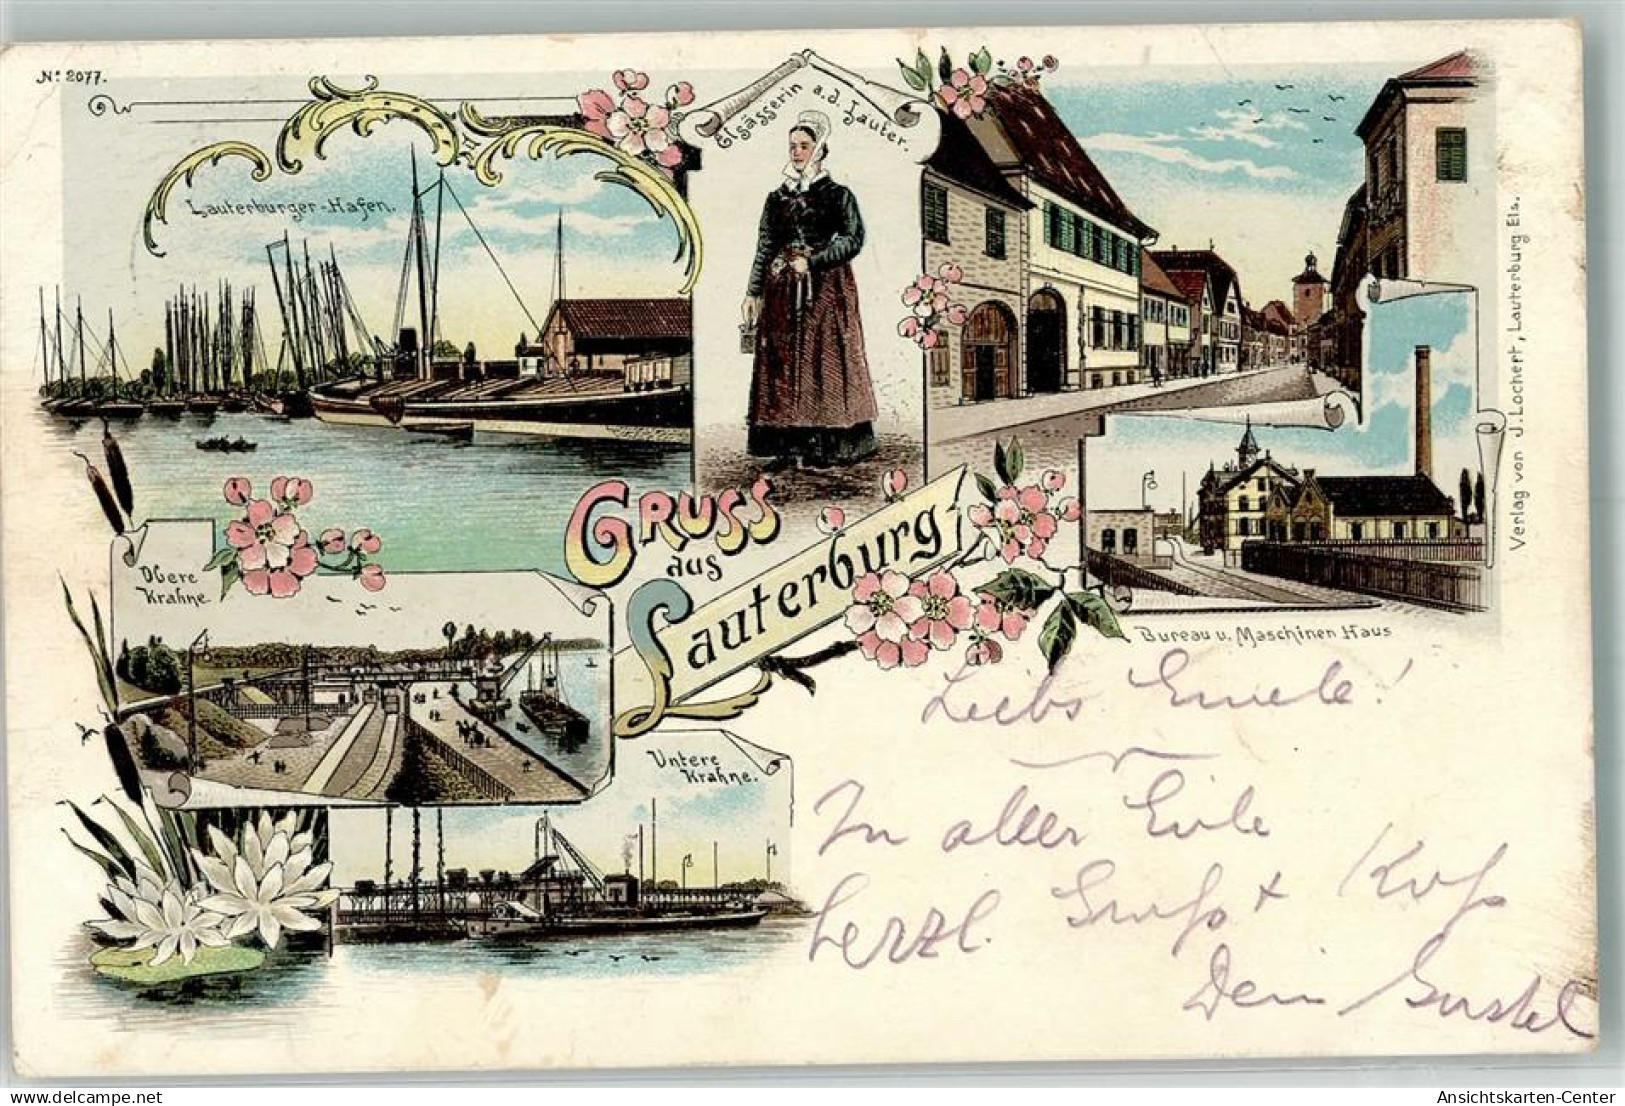 Nº 2077.
Lauterburger-Hafen.
Elsässerin a.d. Lauter.
Verlag von J. Lochert, Lauterburg Els.
Gruss
aus
Lauterburg
Obere
Krahne
Bureau u. Maschinen Haus
Untere
Krahne.
Liebs Emele!
In aller Eile
herzl. Gruß + Kuß
Dein Gustel
Ansichtskarten-Center